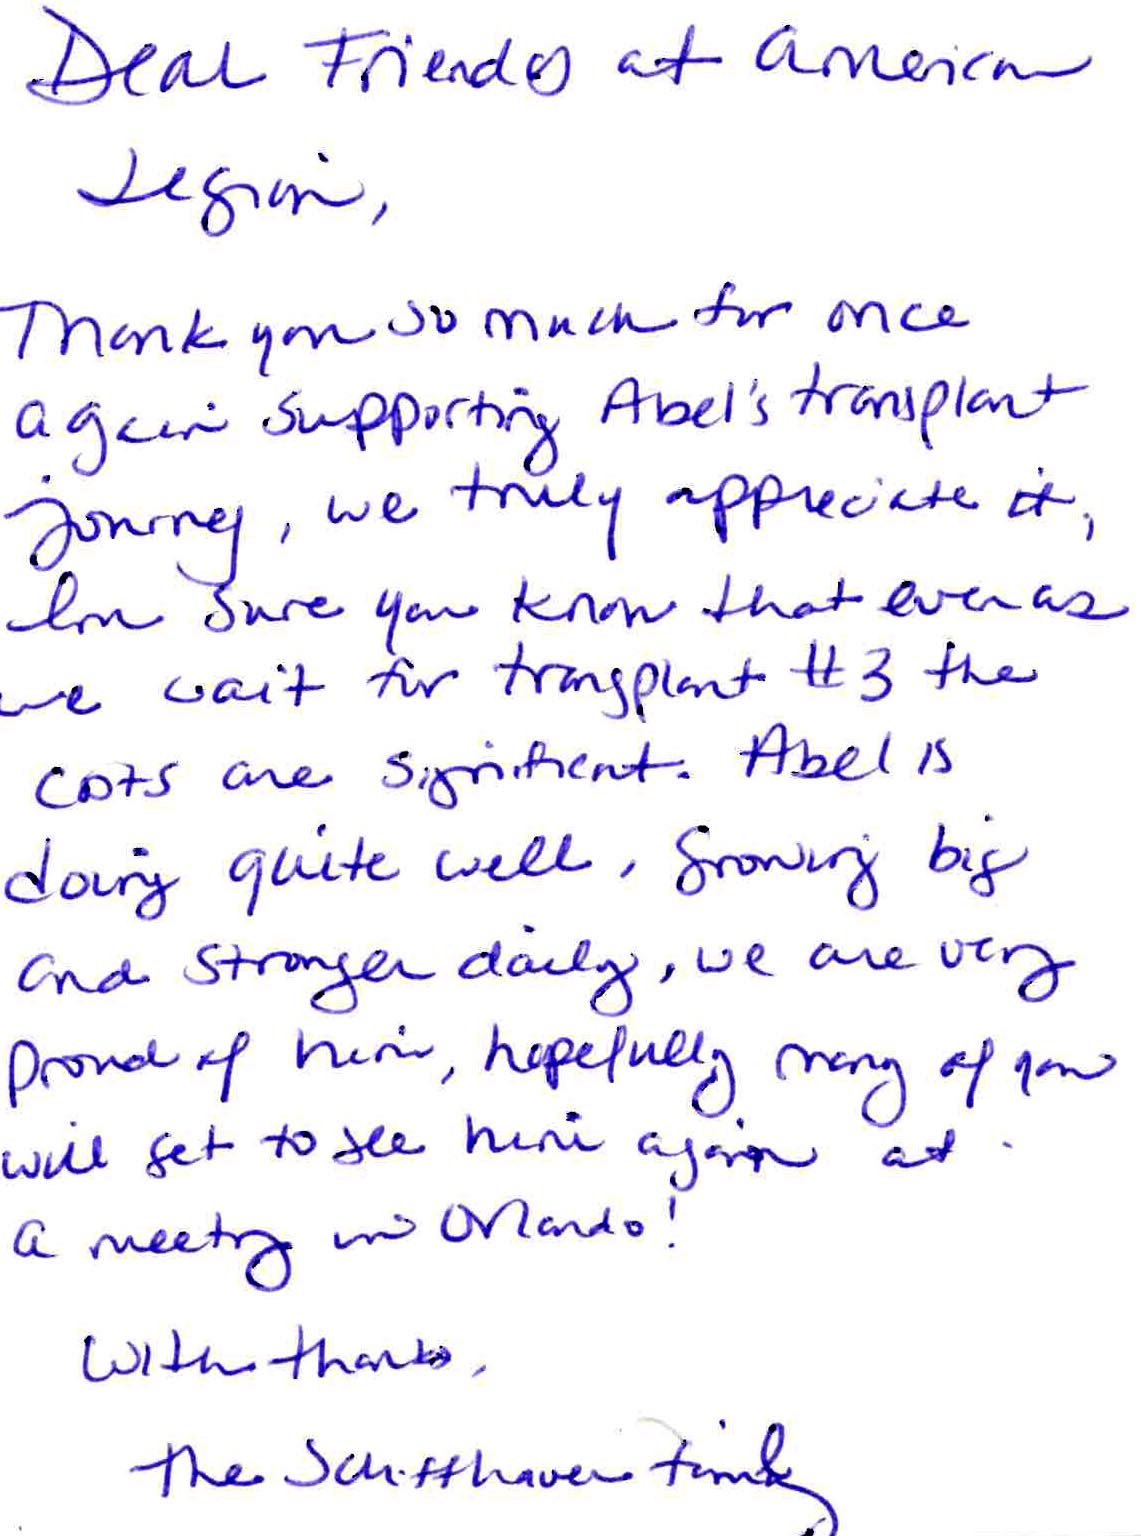 Dear Friends at American
Legion,
Thank you so much for once
again supporting Abel's transplant
journey, we truly appreciate it,
Im sure you know that even as
we wait for transplant #3 the
costs are significant. Abel is
doing quite well, growing big
and stronger daily, we are very
proud of him, hopefully many of you
will get to see him again at
a meeting in Orlando!
With thanks,
The Family